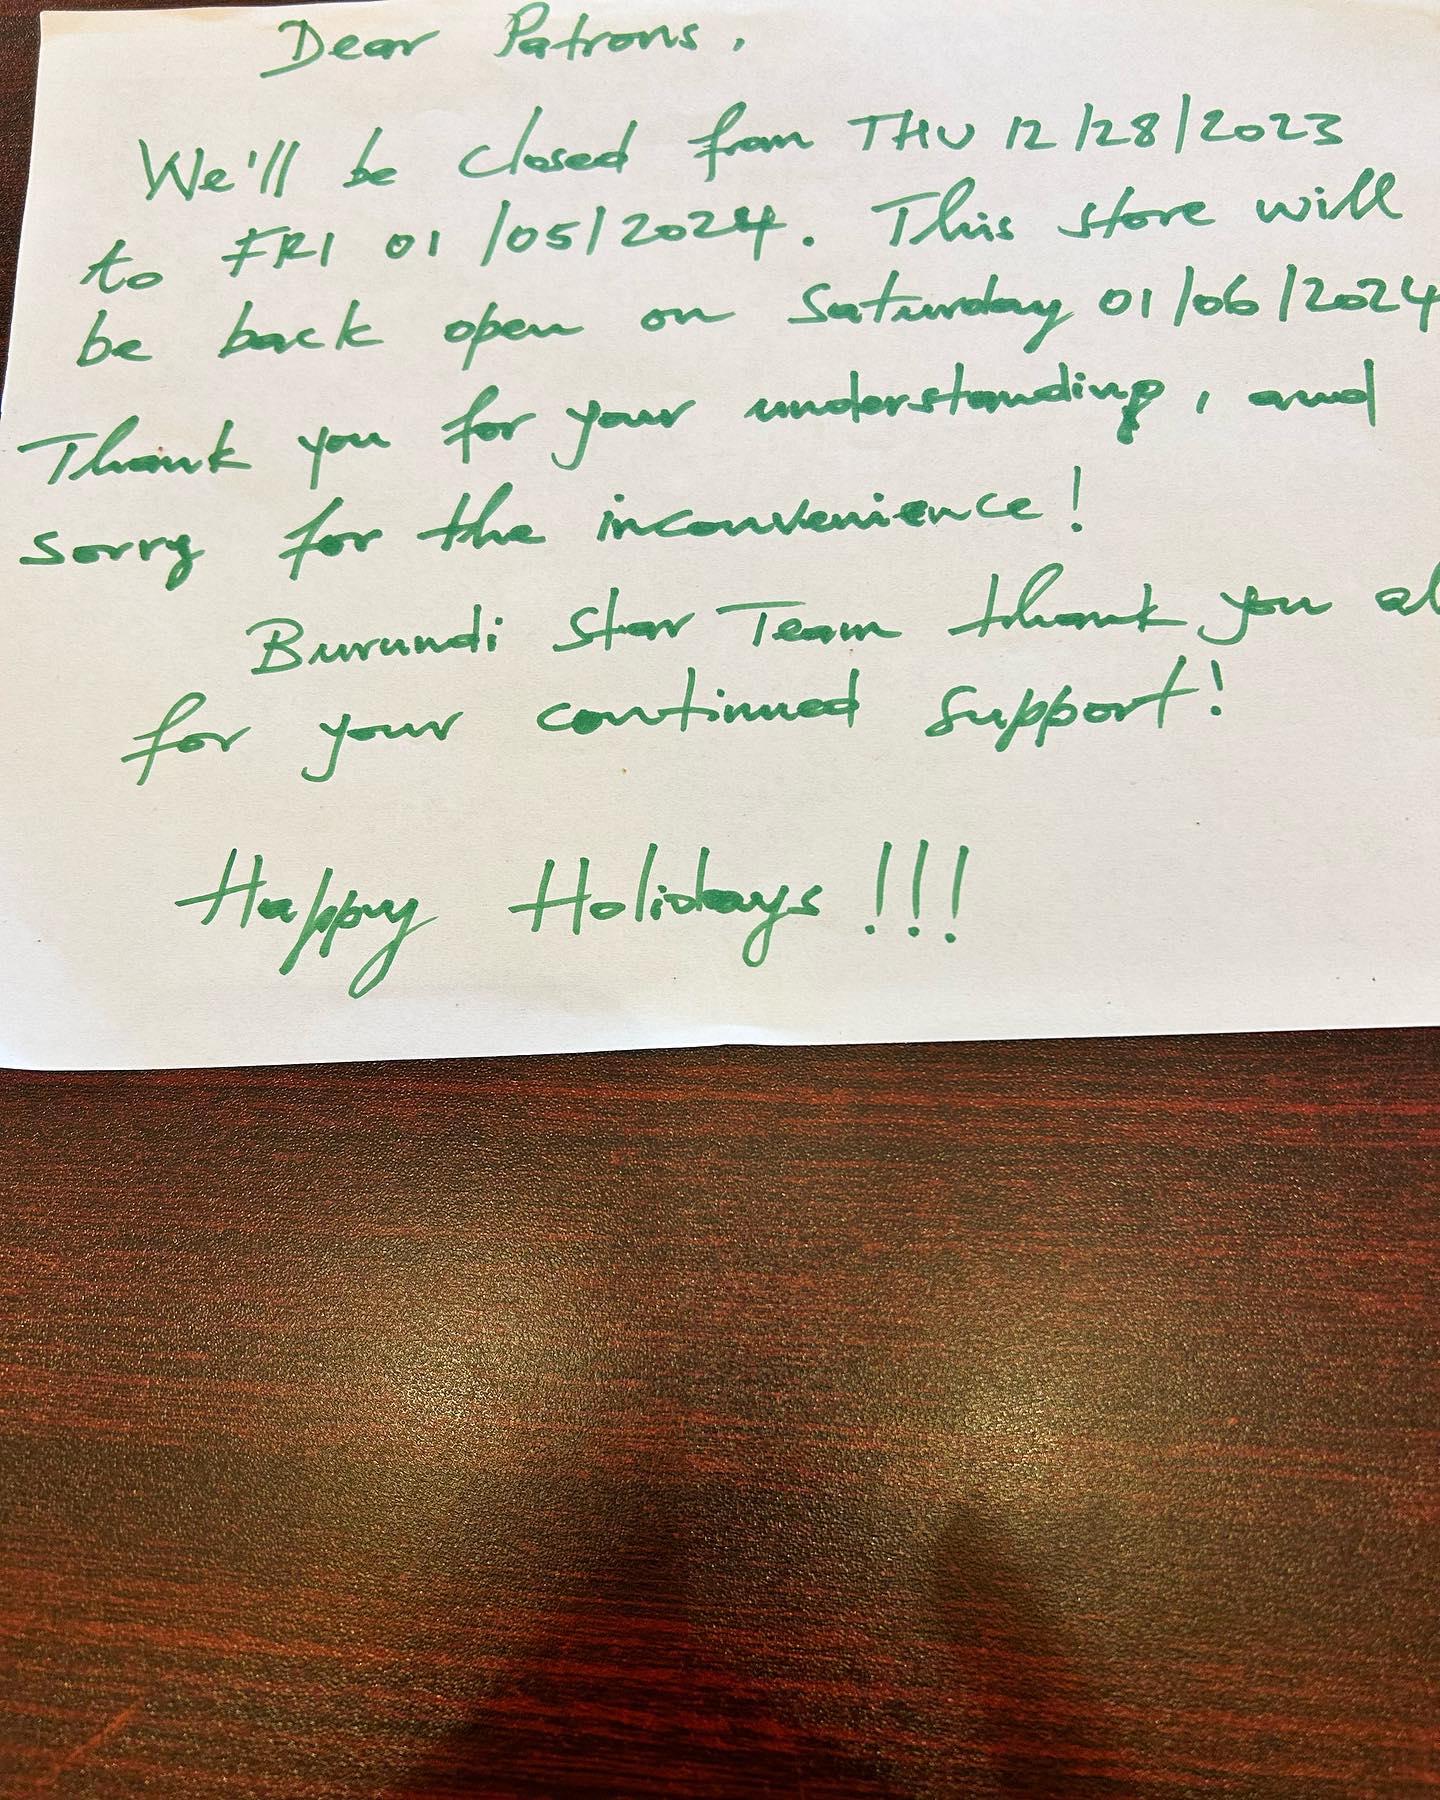 Dear Patrons,
We'll be closed from THU 12/28/2023
to FRI 01/05/2024. This store will
be back open on Saturday 01/06/2024
Thank you for your understanding, and
sorry for the inconvenience!
Burundi Star Team thank you al
for your continued support!
Happy Holidays!!!